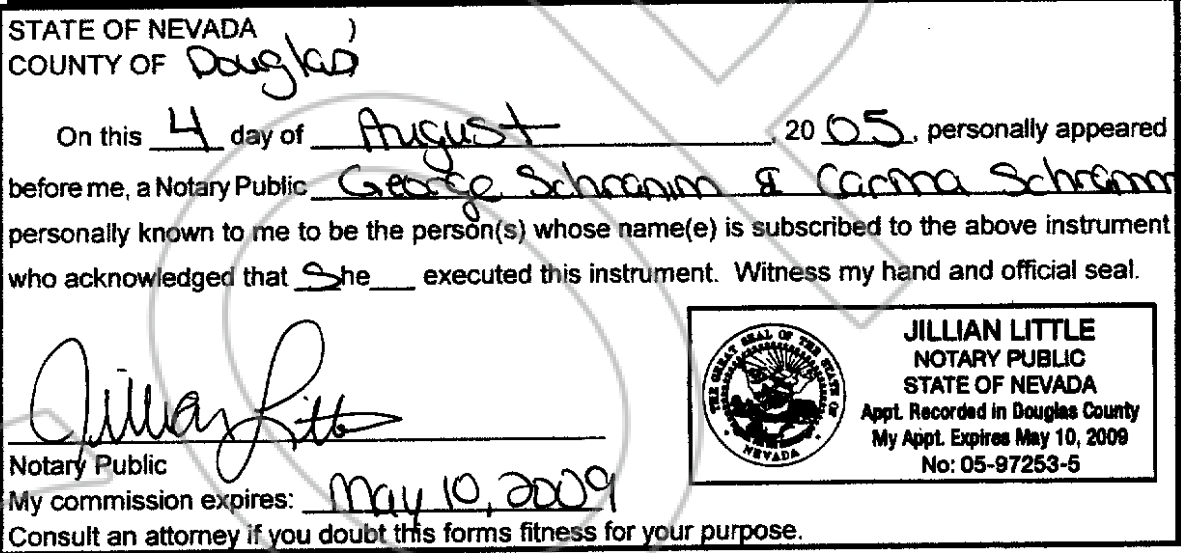 STATE OF NEVADA )
COUNTY OF Douglas
On this 4 day of August, 20 05, personally appeared
before me, a Notary Public George Schramm & Carma Schramm
personally known to me to be the person(s) whose name(e) is subscribed to the above instrument
who acknowledged that She executed this instrument. Witness my hand and official seal.
Jillian Little
Notary Public
My commission expires: May 10, 2009
Consult an attorney if you doubt this forms fitness for your purpose.
THE GREAT SEAL OF THE STATE OF NEVADA
JILLIAN LITTLE
NOTARY PUBLIC
STATE OF NEVADA
Appt. Recorded in Douglas County
My Appt. Expires May 10, 2009
No: 05-97253-5